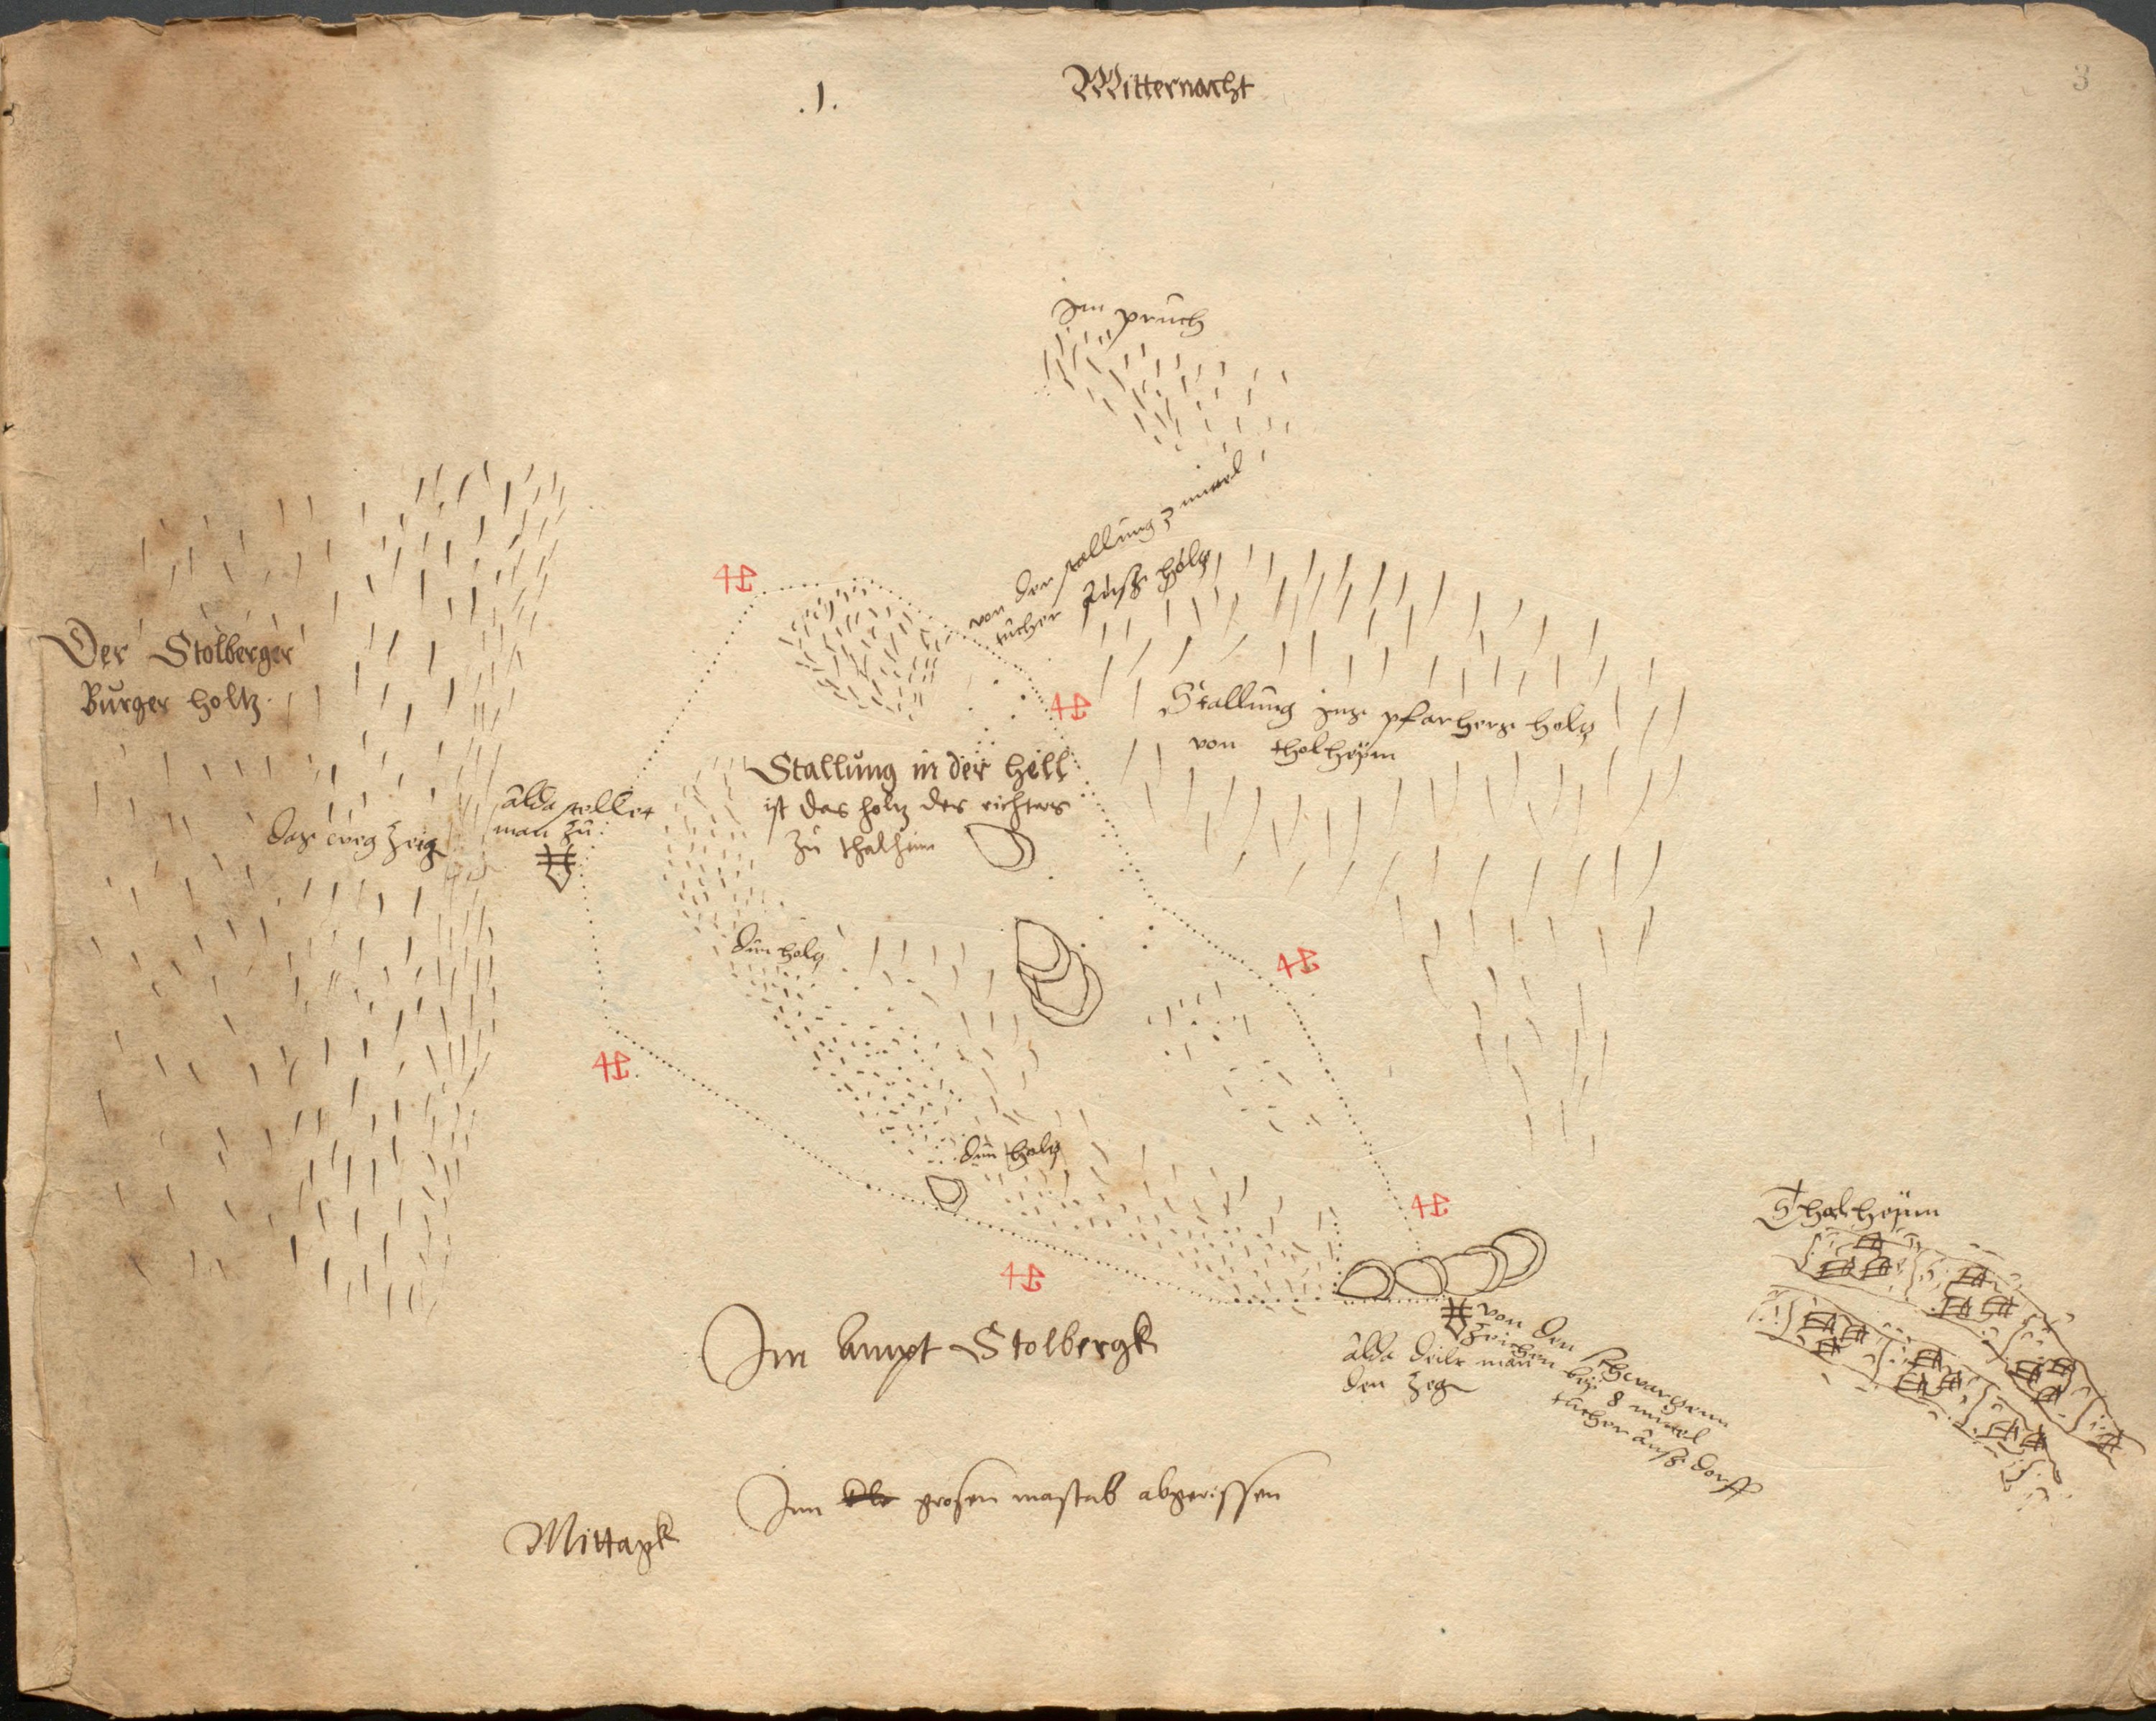 .1.
Mitternacht
3
Im pruch
von der stallung 3 mittel
tucher zuß holtz
Der Stolberger
Burger holtz
Stallung ins pfarhers holtz
von tholheÿm
Stallung in der hell
ist das holtz des richters
zu thalheim
alda stellet
man zu
das
dün holtz
dün holtz
Thalheÿm
Im Ampt Stolbergk
von den schwartzenn
zeichen beÿ 8 mittel
tucher auß dorff
alda deilt man
den Zeg
Inn grosen mastab abgerissen
Mittagk